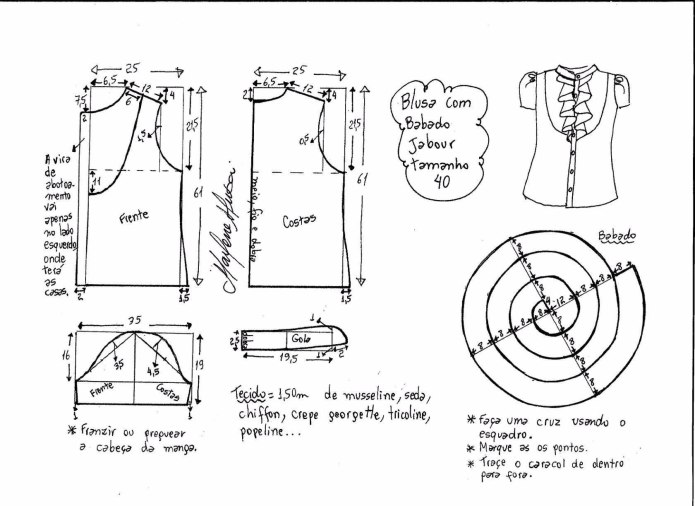 25
6,5
12
4
7,5
6
2
21,5
61
11
Frente
A vira
de
abotoa-
mento
vai
apenas
no lado
esquerdo
onde
terá
as
casas.
2
1,5
Marlene Mukai
25
6,5
12
4
2
21,5
61
meio, fio e dobra
Costas
1,5
Blusa com
Babado
Jabour
tamanho
40
Babado
8
8
8
8
8
8
8
8
4
12
8
8
8
8
8
8
35
16
19
3,5
4,5
Frente
Costas
1
1
* Franzir ou preguear
a cabeça da manga.
1
2,5
Gola
19,5
1
2
Tecido = 1,50m de musseline, seda,
chiffon, crepe georgette, tricoline,
popeline...
* Faça uma cruz usando o
esquadro.
* Marque as os pontos.
* Trace o caracol de dentro
para fora.